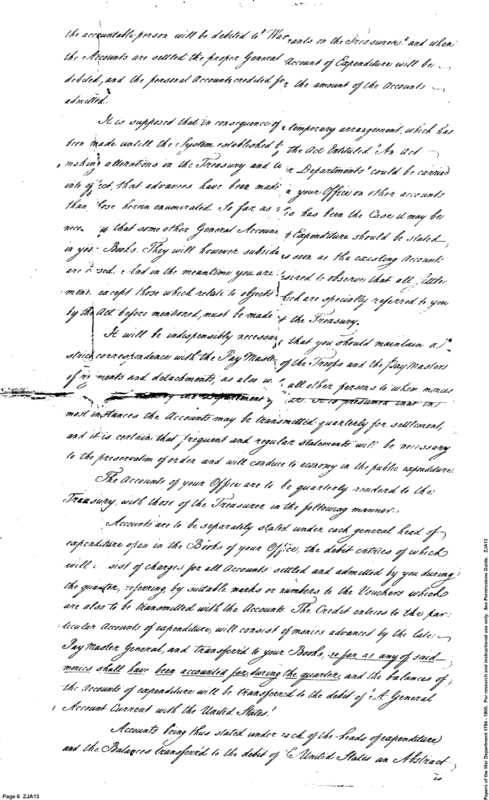 the accountable person will be debited to Warrants on the Treasurer and when
the Accounts are settled the proper General Account of Expenditure will be
debited, and the personal Accounts credited for the amount of the Accounts
admitted.
It is supposed that in consequence of a temporary arrangement, which has
been made untill the System established by the Act Entituled "An Act
making alterations in the Treasury and War Departments" could be carried
into effect, that advances have been made in your Office on other accounts
than those herein enumerated. So far as this has been the Case it may be
necessary that some other General Account of Expenditure should be stated
in your Books. They will however subside as soon as the existing Accounts
are closed. And in the meantime you are desired to observe that all settle-
ments except those which relate to objects which are specially referred to you
by the Act before mentioned, must be made at the Treasury.
It will be indispensibly necessary that you should maintain a
strict correspondence with the Pay Master of the Troops and the Pay Masters
of regiments and detachments, as also with all other persons to whom monies
It is presumed that in
most instances the Accounts may be transmitted quarterly for settlement,
and it is certain that frequent and regular statements will be necessary
to the preservation of order and will conduce to economy in the public expenditure.
The Accounts of your Office are to be quarterly rendered to the
Treasury, with those of the Treasurer in the following manner.
Accounts are to be separately stated under each general head of
expenditure open in the Books of your Office, the debit entries of which
will consist of charges for all Accounts settled and admitted by you during
the quarter, referring by suitable marks or numbers to the Vouchers which
are also to be transmitted with the Accounts. The Credit entries to the par-
ticular Accounts of expenditure, will consist of monies advanced by the late
Pay Master General, and transferred to your Books, so far as any of said
monies shall have been accounted for, during the quarter, and the balances of
the Accounts of expenditure will be transferred to the debit of "A General
Account Current with the United States."
Accounts being thus stated under each of the heads of expenditure
and the Balances transferred to the debit of the United States an Abstract
is
Page 6 ZJA13
Papers of the War Department 1784 - 1800. For research and instructional use only. See Permissions Guide. ZJA13